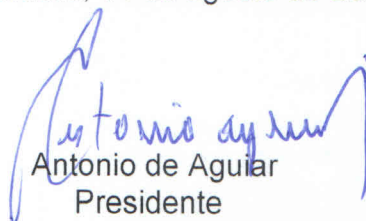 Antonio aguiar
Antonio de Aguiar
Presidente